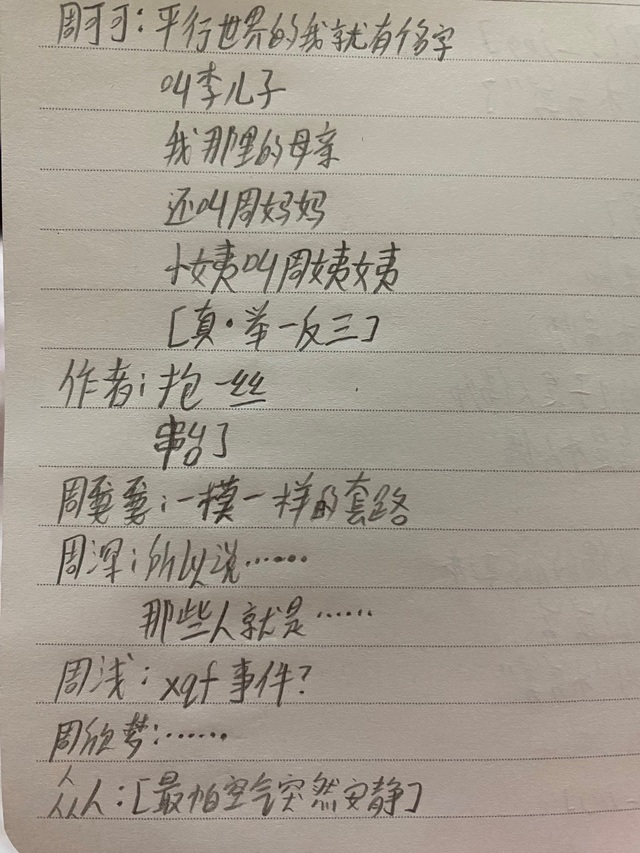 周可可:平行世界的我就有个名字
叫李儿子
我那里的母亲
还叫周妈妈
小姨叫周姨姨
[真·举一反三]
作者:抱一丝
串台了
周耍耍:一模一样的套路
周深:所以说……
那些人就是……
周浅:xqf事件?
周欣梦:……
众人:[最怕空气突然安静]